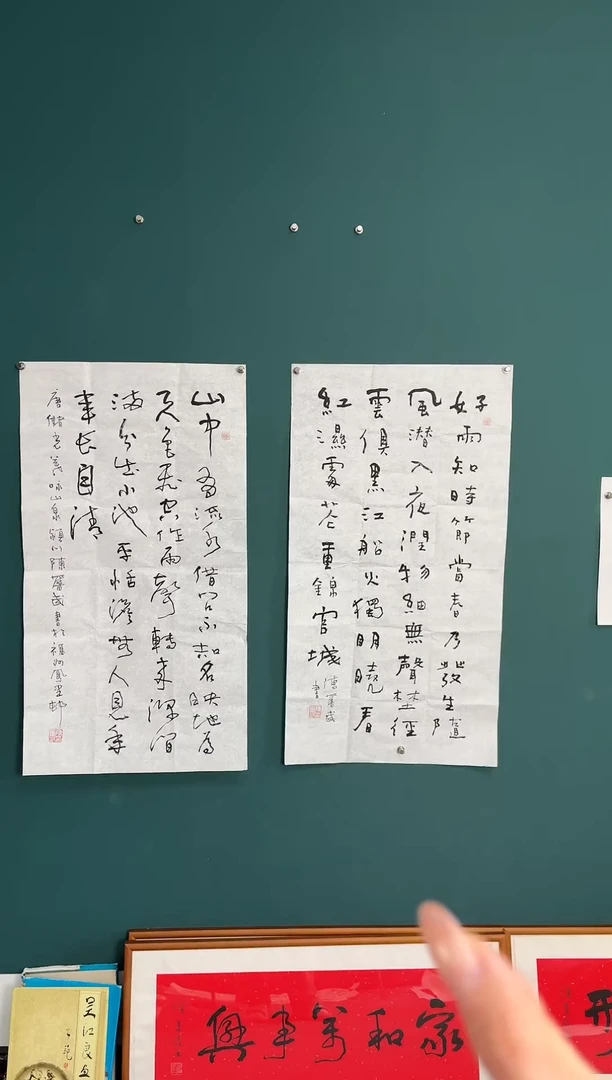 好雨知時節當春乃發生隨
風潛入夜潤物細無聲埜徑
雲俱黑江船火獨明曉看
紅濕處花重錦官城
書
山中有流水借問不知名映地為
天色飛空作雨聲轉來深澗
滿分出小池平恬澹無人見年
年長自清
唐儲光羲詠山泉潁川陳 書於福州鳳 邨
家和萬事興